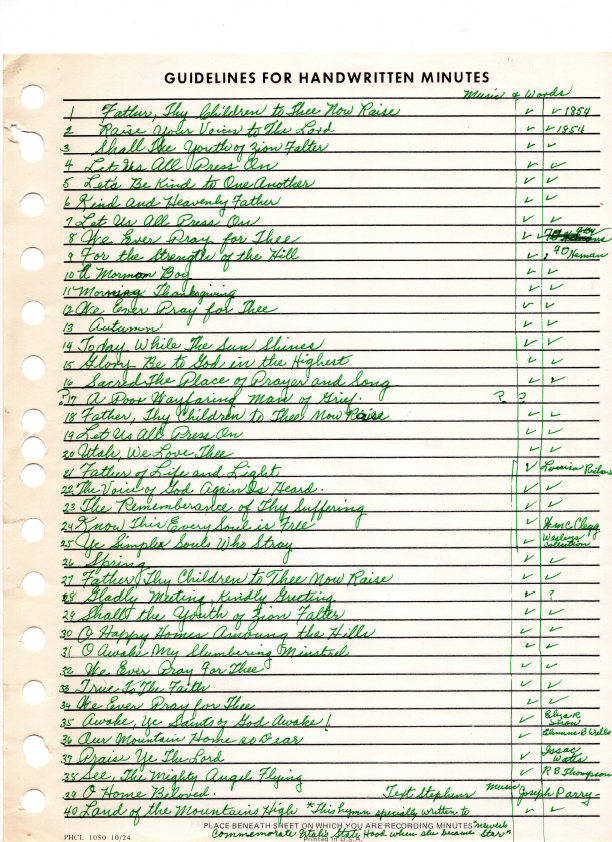 GUIDELINES FOR HANDWRITTEN MINUTES
Music & Words
1 Father, Thy Children to Thee Now Raise ✓ ✓ 1854
2 Raise Your Voices to The Lord ✓ ✓ 1854
3 Shall the Youth of Zion Falter ✓ ✓
4 Let Us All Press On ✓ ✓
5 Let's Be Kind to One Another ✓ ✓
6 Kind and Heavenly Father ✓ ✓
7 Let Us All Press On ✓ ✓
8 We Ever Pray for Thee ✓ ✓
9 For the Strength of the Hill ✓
10 A Mormon Boy ✓ ✓
11 Morning Thanksgiving ✓ ✓
12 We Ever Pray for Thee ✓ ✓
13 Autumn ✓ ✓
14 Today While The Sun Shines ✓ ✓
15 Glory Be to God in the Highest ✓ ✓
16 Sacred The Place of Prayer and Song ✓ ✓
?17 A Poor Wayfaring Man of Grief. ? ?
18 Father, Thy Children to Thee Now Raise ✓ ✓
19 Let Us All Press On ✓ ✓
20 Utah, We Love Thee ✓ ✓
21 Father of Life and Light ✓ Louisa
22 The Voice of God Again Is Heard. ✓ ✓
23 The Rememberance of Thy Suffering ✓ ✓
24 Know This Every Soul is Free ✓ Clegg
25 Ye Simplex Souls Who Stray ✓ Wesleys Collection
26 Spring ✓ ✓
27 Father, Thy Children to Thee Now Raise ✓ ✓
28 Gladly Meeting Kindly Greeting ✓ ?
29 Shall the Youth of Zion Falter ✓ ✓
30 O Happy Homes Amoung the Hills ✓ ✓
31 O Awake My Slumbering Minstrel ✓ ✓
32 We Ever Pray For Thee ✓ ✓
33 True To The Faith ✓ ✓
34 We Ever Pray for Thee ✓ ✓
35 Awake, Ye Saints of God Awake! ✓ Eliza R Snow
36 Our Mountain Home so Dear ✓ Emmene B Wells
37 Praise Ye The Lord ✓ Issac Watts
38 See, The Mighty Angel Flying ✓ R B Thompson
39 O Home Beloved. Text Stephens Music Joseph Parry-
40 Land of the Mountains High *This hymn specially written to ✓ ✓
PLACE BENEATH SHEET ON WHICH YOU ARE RECORDING MINUTES
Commemorate Utah's State Hood when she became Star"
PHCL 1050 10/24 Printed in U.S.A.